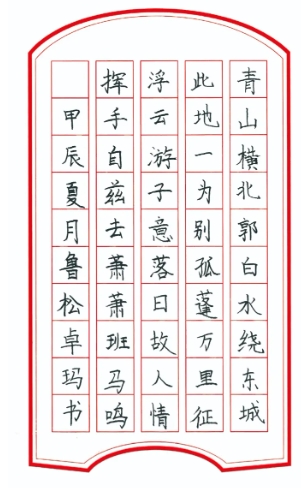 青山横北郭白水绕东城
此地一为别孤蓬万里征
浮云游子意落日故人情
挥手自兹去萧萧班马鸣
甲辰夏月鲁松卓玛书